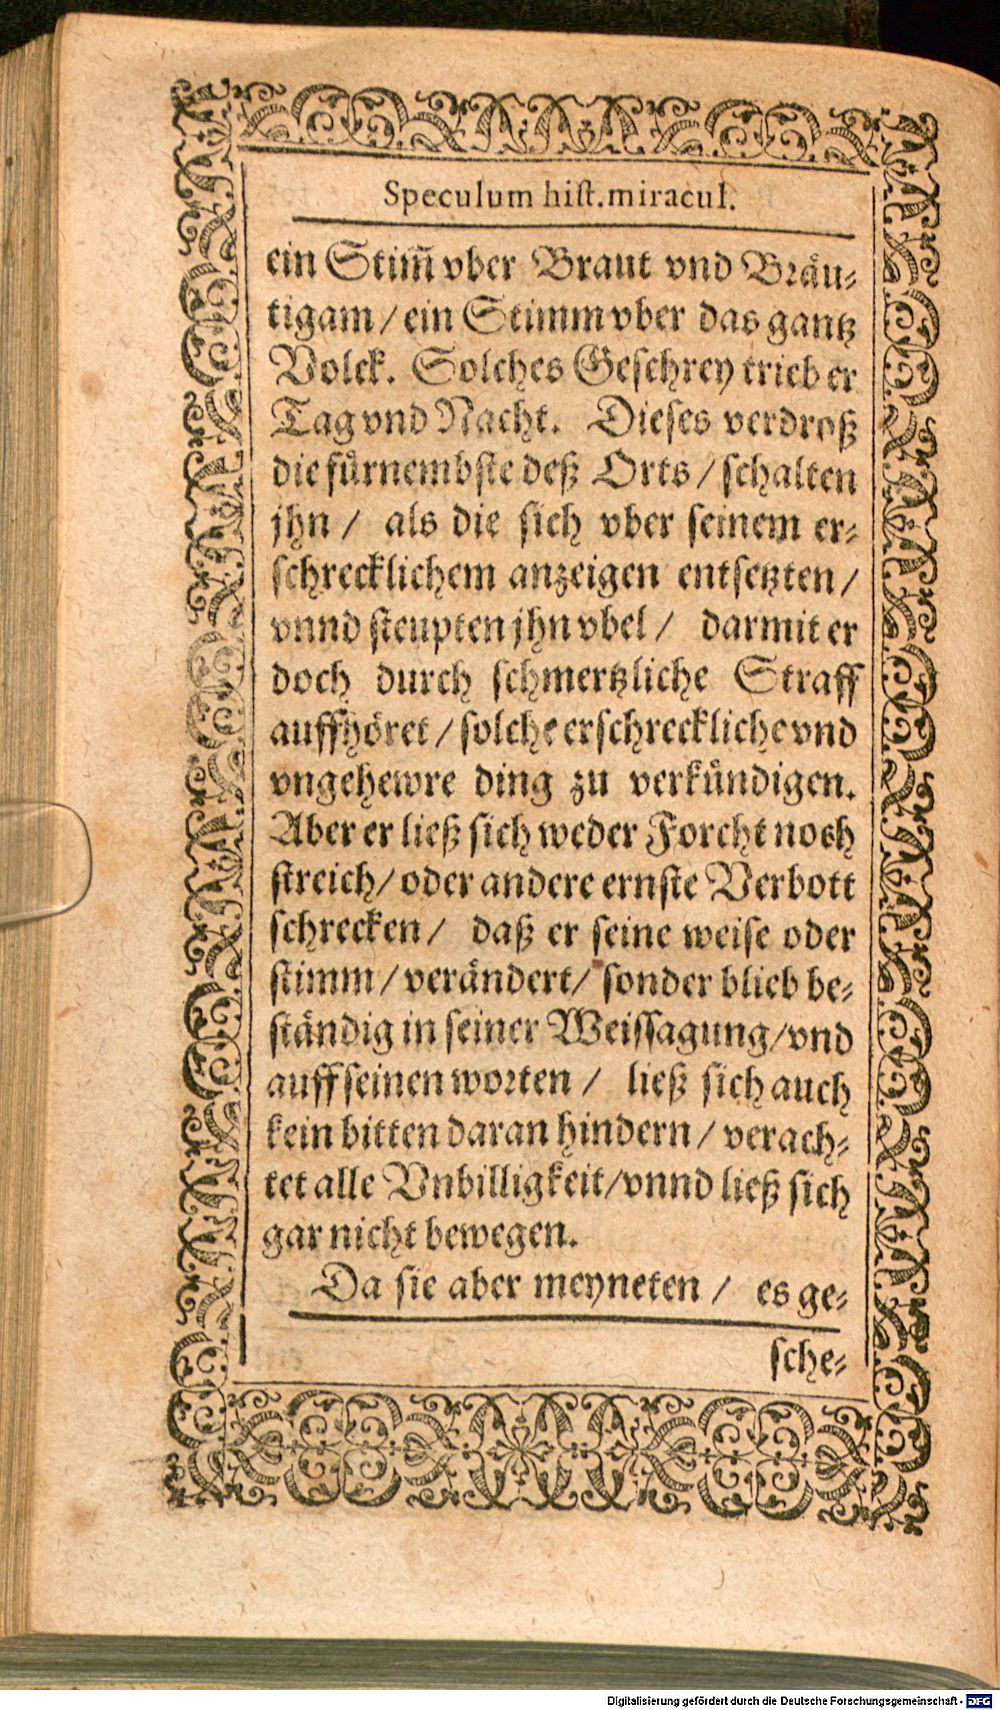 Speculum hist. miracul.
ein Stim̃ vber Braut vnd Bräu-
tigam / ein Stimm vber das gantz
Volck. Solches Geschrey trieb er
Tag vnd Nacht. Dieses verdroß
die fürnembste deß Orts / schalten
jhn / als die sich vber seinem er-
schrecklichem anzeigen entsetzten /
vnnd steupten jhn vbel / darmit er
doch durch schmertzliche Straff
auffhöret / solche erschreckliche vnd
vngehewre ding zu verkündigen.
Aber er ließ sich weder Forcht noch
streich / oder andere ernste Verbott
schrecken / daß er seine weise oder
stimm / verändert / sonder blieb be-
ständig in seiner Weissagung / vnd
auff seinen worten / ließ sich auch
kein bitten daran hindern / verach-
tet alle Vnbilligkeit / vnnd ließ sich
gar nicht bewegen.
Da sie aber meyneten / es ge-
sche-
Digitalisierung gefördert durch die Deutsche Forschungsgemeinschaft - DFG